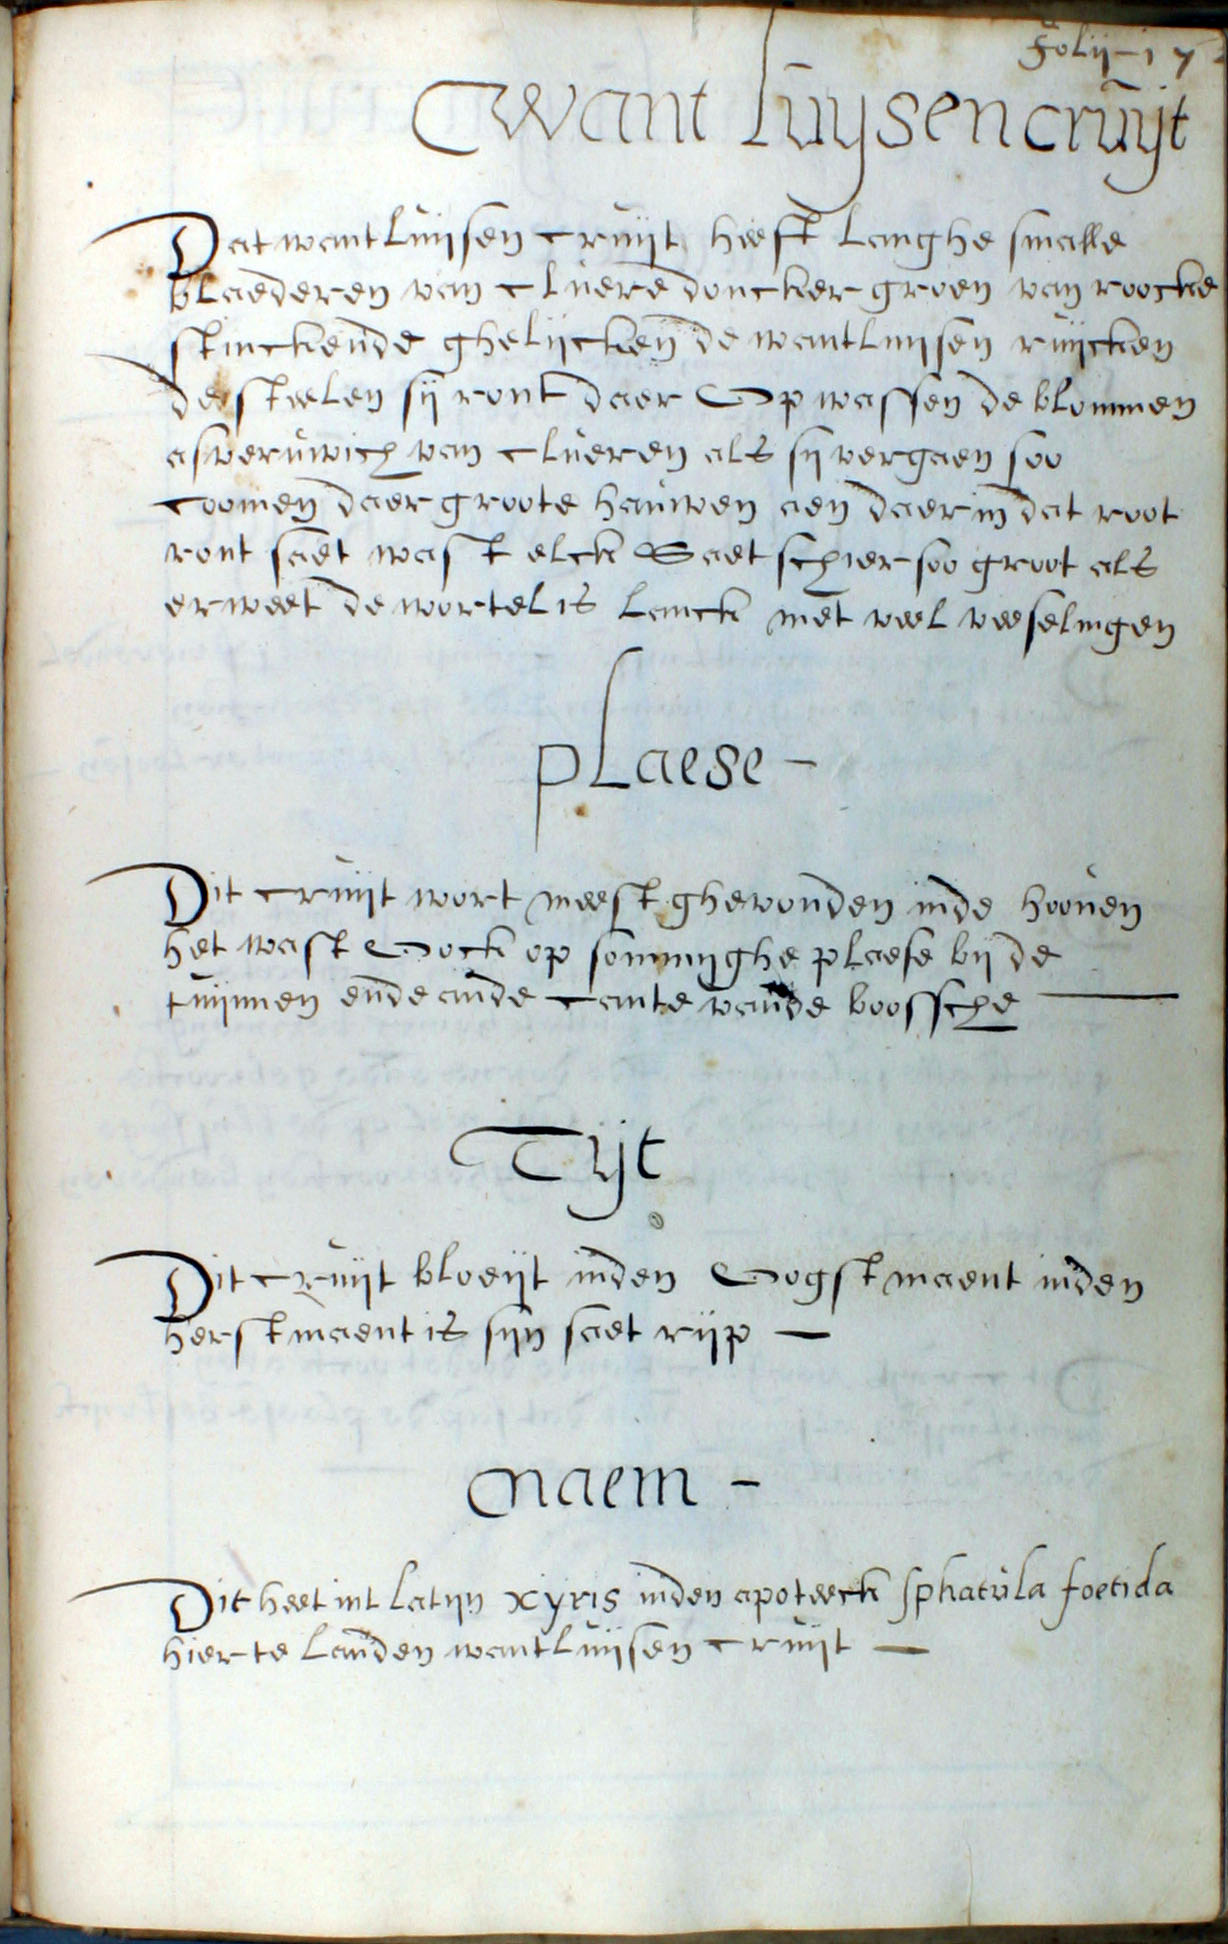 Folij-17
Want luysencruijt
Dat wantluijsen cruijt heeft langhe smalle
blaederen van cluere doncker groen van roocke
stinckende ghelijcken de wantluijsen ruijcken
de steelen sij ront daer Op wassen de blommen
asveruwich van clueren als sij vergaen soo
coomen daer groote hauwen aen daer in dat root
ront saet wast elck Saet schier soo groot als
erweet de wortel is lanck met veel veeselingen
plaese -
Dit cruijt wort meest ghevonden inde hooven
het wast Oock op sommijghe plaese bij de
tuijnnen ende ande cante vande boossche
Tijt
Dit cruijt bloeijt inden Oogstmaent inden
herstmaent is sijn saet rijp —
naem -
Dit heet int latijn xyris inden apoteeck sphatula foetida
hier te landen wantluijsen cruijt —